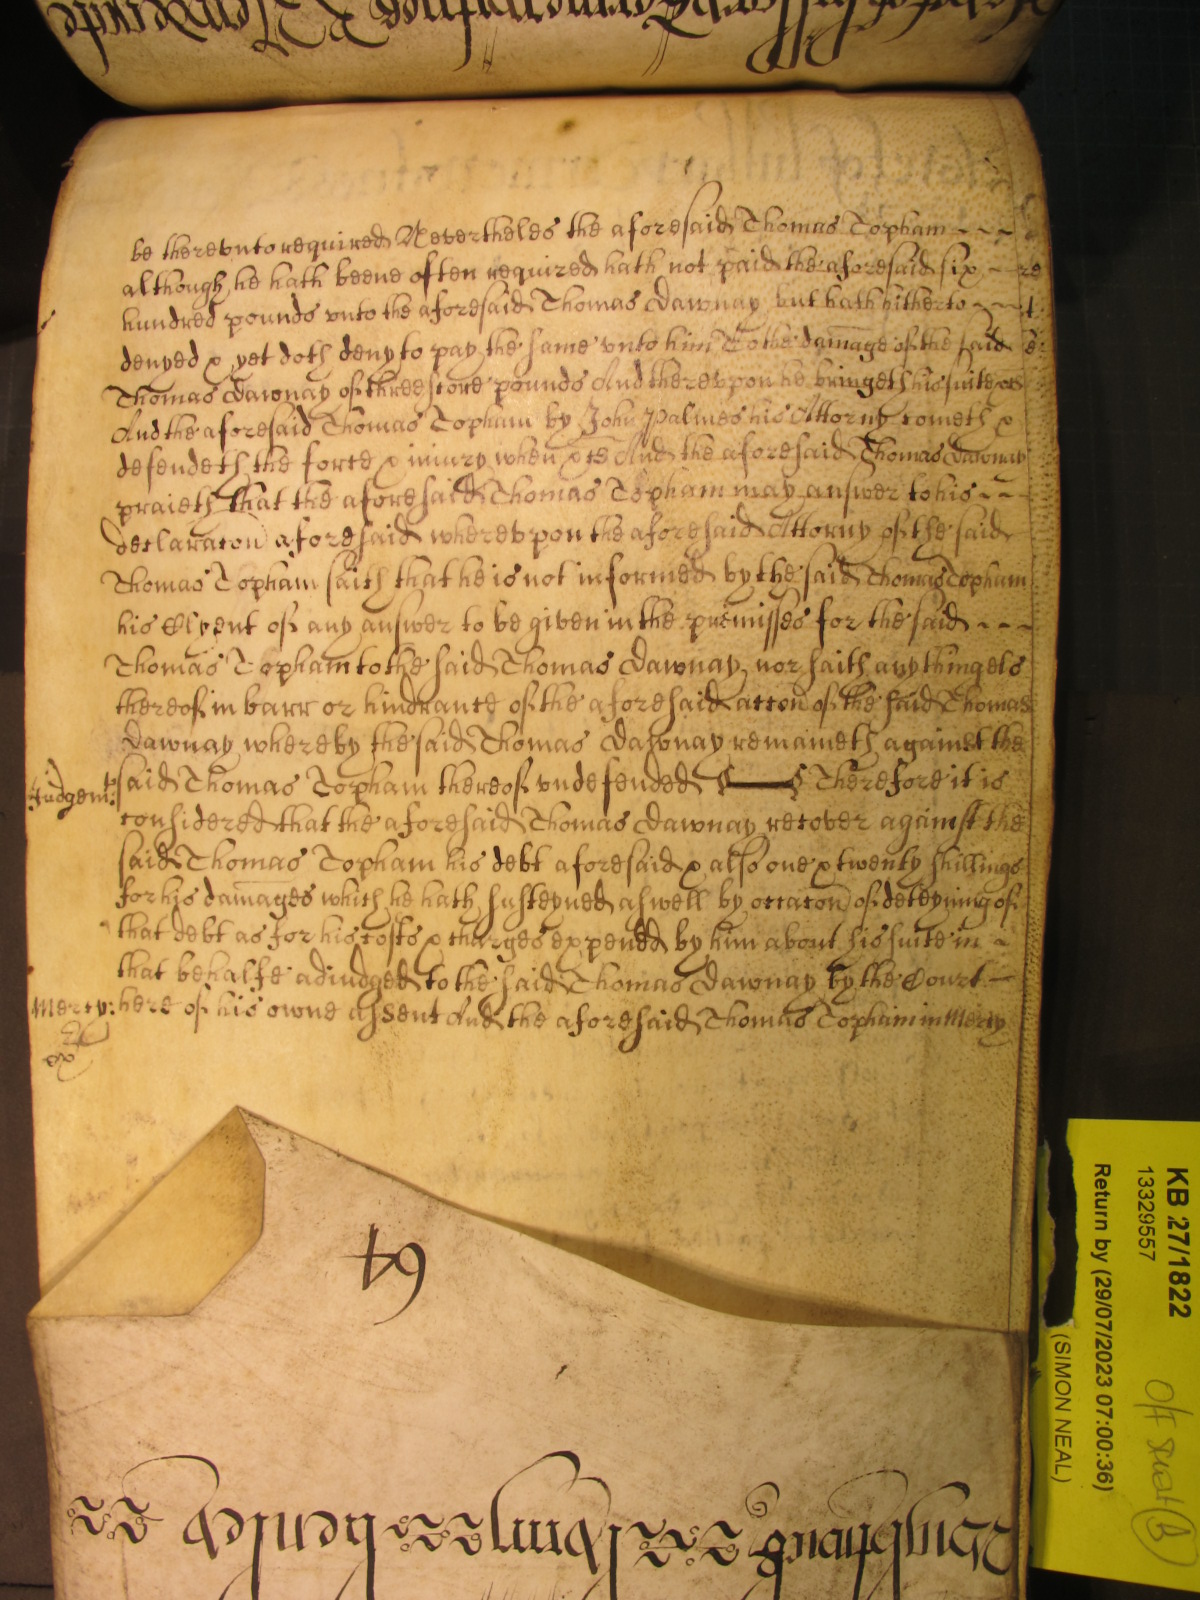 be therevnto required Nevertheles the aforesaid Thomas Topham
although he hath beene often required hath not paid the aforesaid six
hundred pounds vnto the aforesaid Thomas Dawnay but hath hitherto
denyed & yet doth deny to pay the same vnto him To the damage of the said
Thomas Dawnay of threescore pounds And therevpon he bringeth his suite &c
And the aforesaid Thomas Topham by John Palmes his Attorny cometh &
defendeth the force & iniury when &c And the aforesaid Thomas Dawnay
praieth that the aforesaid Thomas Topham may answer to his
declaracon aforesaid wherevpon the aforesaid Attorny of the said
Thomas Topham saith that he is not informed by the said Thomas Topham
his Clyent of any answer to be given in the premisses for the said
Thomas Topham to the said Thomas Dawnay nor saith any thing els
thereof in barr or hindrance of the aforesaid accon of the said Thomas
Dawnay whereby the said Thomas Dawnay remaineth against the
Judgemt: said Thomas Topham thereof vndefended Therefore it is
considered that the aforesaid Thomas Dawnay recover against the
said Thomas Topham his debt aforesaid & also one & twenty shillings
for his damages which he hath susteyned aswell by occacon of deteyning of
that debt as for his costs & charges expended by him about his suite in
that behalfe adiudged to the said Thomas Dawnay by the Court
Mercy: here of his owne assent And the aforesaid Thomas Topham in Mercy
ex
64
KB 27/1822
13329557
Return by (29/07/2023 07:00:36)
(SIMON NEAL)